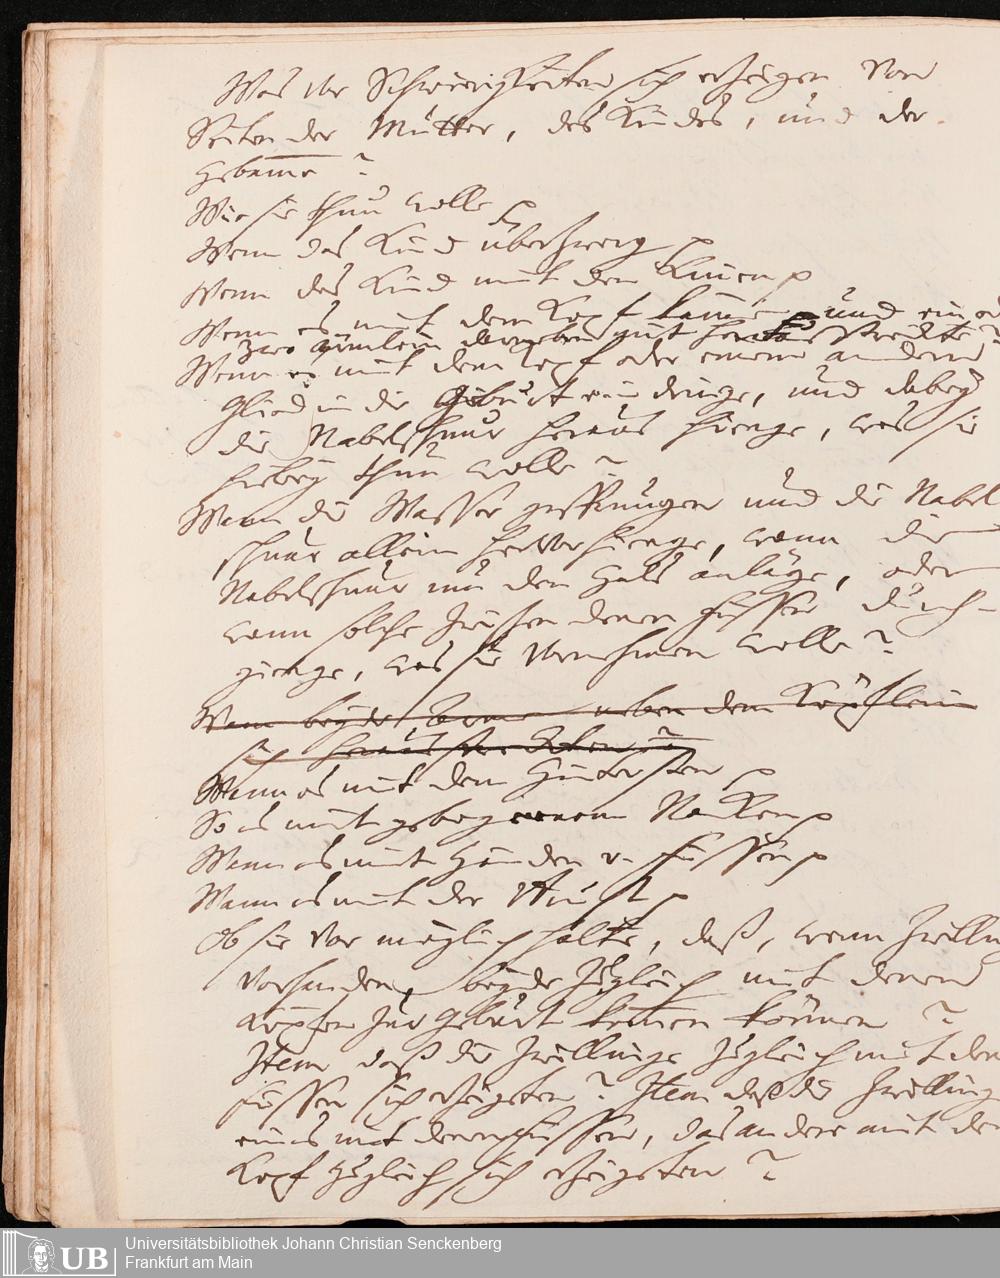 Was vor Schwierigkeiten sich ereigen von
Seiten der Mutter, des Kindes, und der
Hebamme?
Wie sie thun wolle
Wenn das Kind überzwerg
Wenn das Kind mit den Knien
Wenn es mit dem Kopf käme und ein od
zwei ärmlein darneben mit heraus streckte?
Wenn es mit dem Kopf oder einem andern
Glied in die Geburt eindringe, und dabey
die Nabelschnur heraus hienge, was sie
hiebey thun wolle?
Wenn die Wasser gesprungen und die Nabel
schnur allein hervorhienge, wenn die
Nabelschnur um den Hals anläge, oder
wenn solche zwischen denen Füssen durch-
gienge, was sie vornehmen wolle?
Wenn beyde Arme neben dem Köpflein
sich heraus strecketen?
Wenn es mit dem Hintersten
So es mit gebogenem Nacken
Wenn es mit Händen u. Füssen
Wann es mit der
Ob sie vor möglich halte, daß, wenn Zwilling
vorhanden, beyde zugleich mit denen
Köpfen zur Geburt kommen können?
Item daß die Zwillinge zugleich mit den
Füssen sich erzeigten? Item daß die Zwilling
eines mit denen Füssen, das andere mit dem
Kopf zugleich sich erzeigten?
UB
Universitätsbibliothek Johann Christian Senckenberg
Frankfurt am Main